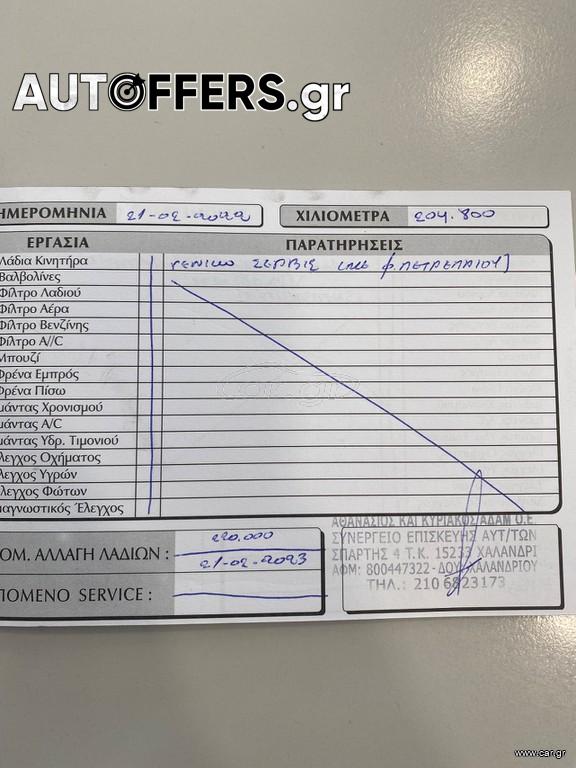 AUTOFFERS.gr
ΗΜΕΡΟΜΗΝΙΑ 21-02-2022 ΧΙΛΙΟΜΕΤΡΑ 204.800
ΕΡΓΑΣΙΑ ΠΑΡΑΤΗΡΗΣΕΙΣ
Λάδια Κινητήρα ΓΕΝΙΚΟ ΣΕΡΒΙΣ (ΜΕ Φ.ΠΕΤΡΕΛΑΙΟΥ)
Βαλβολίνες
Φίλτρο Λαδιού
Φίλτρο Αέρα
Φίλτρο Βενζίνης
Φίλτρο A//C
Μπουζί
Φρένα Εμπρός
Φρένα Πίσω
μάντας Χρονισμού
μάντας A/C
μάντας Υδρ. Τιμονιού
λεγχος Οχήματος
λεγχος Υγρών
λεγχος Φώτων
ιαγνωστικός Έλεγχος
220.000
ΟΜ. ΑΛΛΑΓΗ ΛΑΔΙΩΝ : 21-02-2023
ΠΟΜΕΝΟ SERVICE :
ΑΘΑΝΑΣΙΟΣ ΚΑΙ ΚΥΡΙΑΚΟΣ ΑΔΑΜ Ο.Ε.
ΣΥΝΕΡΓΕΙΟ ΕΠΙΣΚΕΥΗΣ ΑΥΤ/ΤΩΝ
ΣΠΑΡΤΗΣ 4 Τ.Κ. 15233 ΧΑΛΑΝΔΡΙ
ΑΦΜ: 800447322-ΔΟΥ ΧΑΛΑΝΔΡΙΟΥ
ΤΗΛ.: 210 6823173
www.car.gr